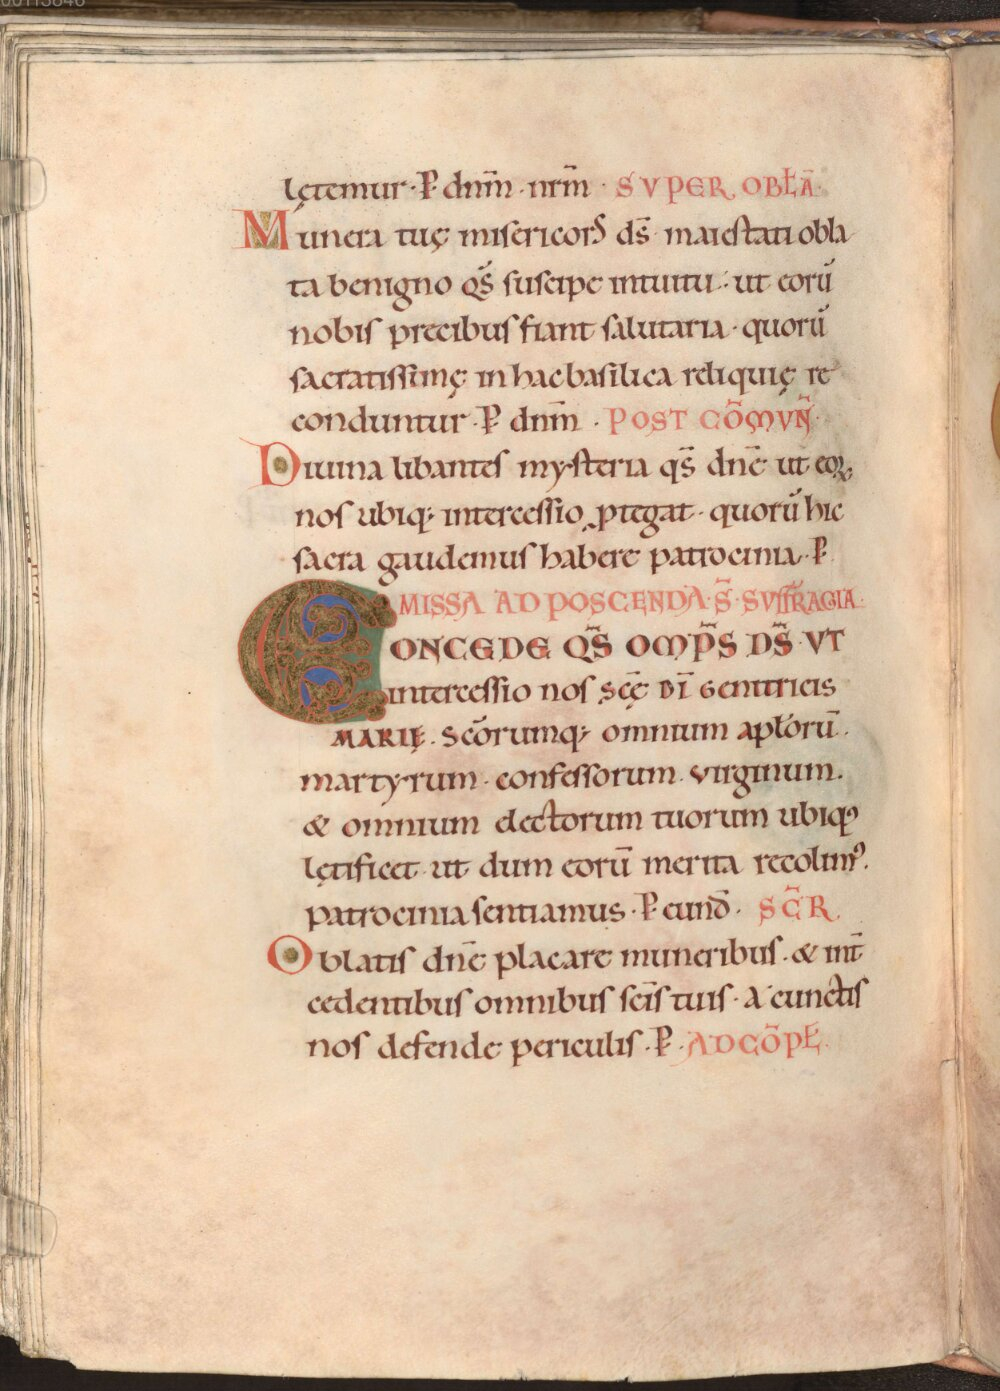 lętemur · P̶ dn̄m · nr̄m · SVPER OBLĀ
Munera tuę misericorð ds̄ maiestati obla
ta benigno qs̄ suscipe intuitu · ut eorū
nobis precibus fiant salutaria · quorū
sacratissimę in hac basilica reliquię re
conduntur · P̶ dn̄m · POST CŌMVN̄
Diuina libantes mysteria qs̄ dnē ut eoꝝ
nos ubiq; intercessio ꝓtegat · quorū hic
sacra gaudemus habere patrocinia · P̶
MISSA AD POSCENDA · S̄ · SVFFRAGIA
CONCEDE QS̄ OMP̄S DS̄ · VT
intercessio nos scę̄ DĪ Genitricis
MARIĘ · Scōrumq; omnium aplōrū ·
martyrum · confessorum · virginum ·
& omnium electorum tuorum ubiqꝫ
lętificet · ut dum eorū merita recolimꝰ ·
patrocinia sentiamus · P̶ eund̄ · SC̄R
Oblatis dnē placare muneribus · & int̄
cedentibus omnibus scīs tuis · a cunctis
nos defende periculis · P̶ · AD CŌPL̄